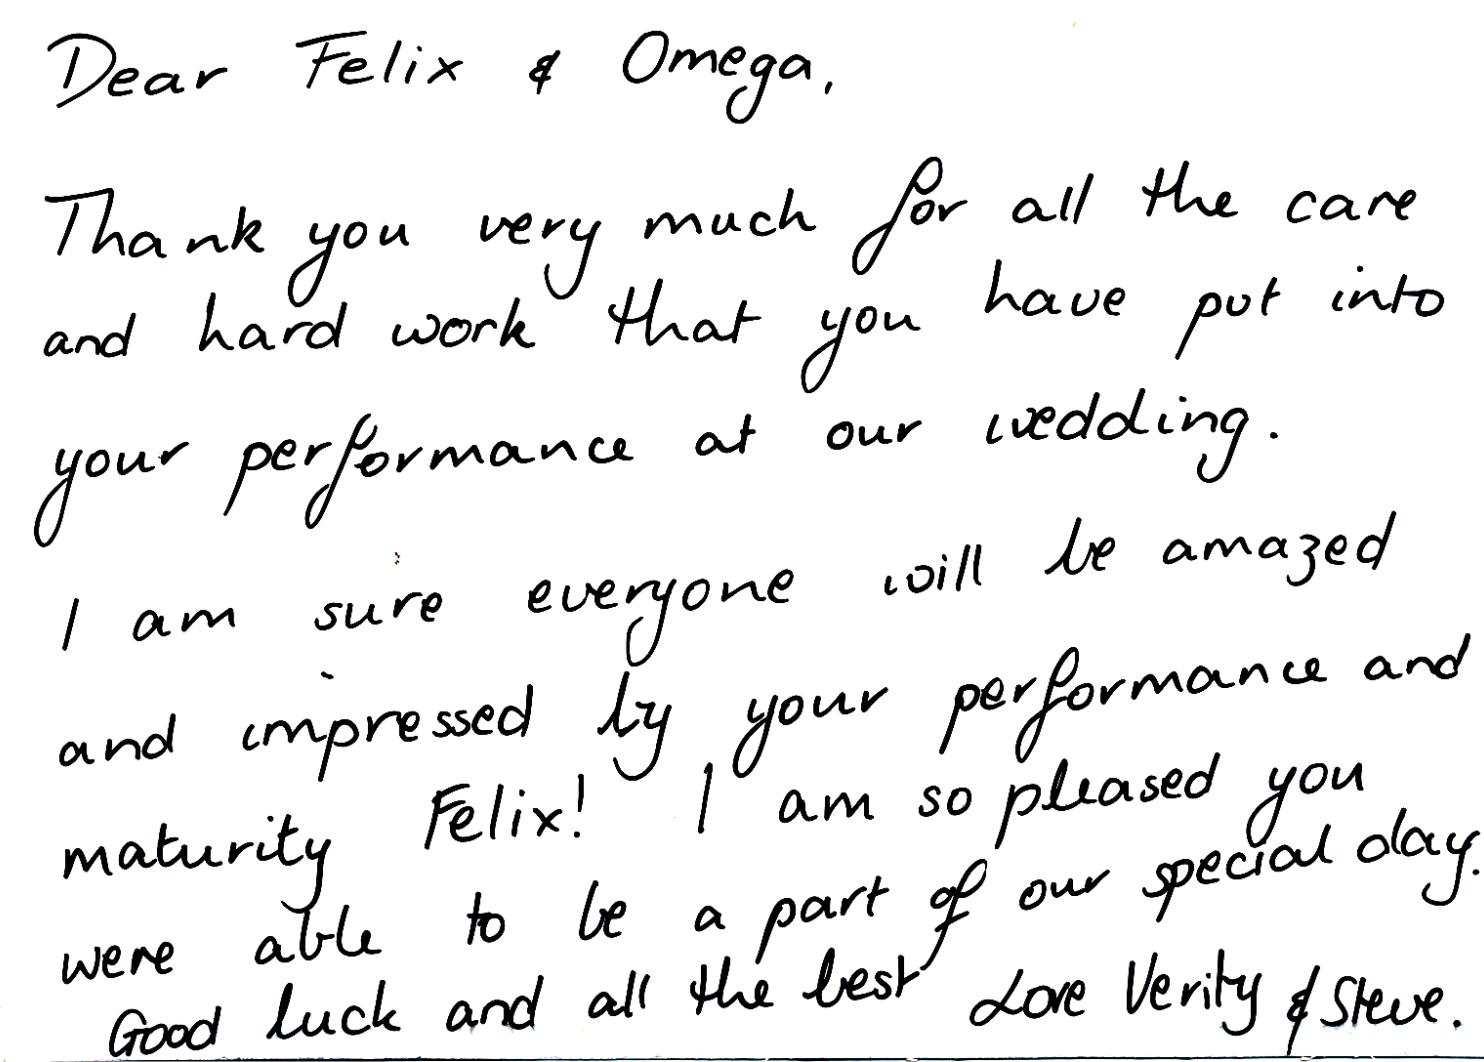 Dear Felix & Omega,
Thank you very much for all the care
and hard work that you have put into
your performance at our wedding.
I am sure everyone will be amazed
and impressed by your performance and
maturity Felix! I am so pleased you
were able to be a part of our special day.
Good luck and all the best Love Verity & Steve.